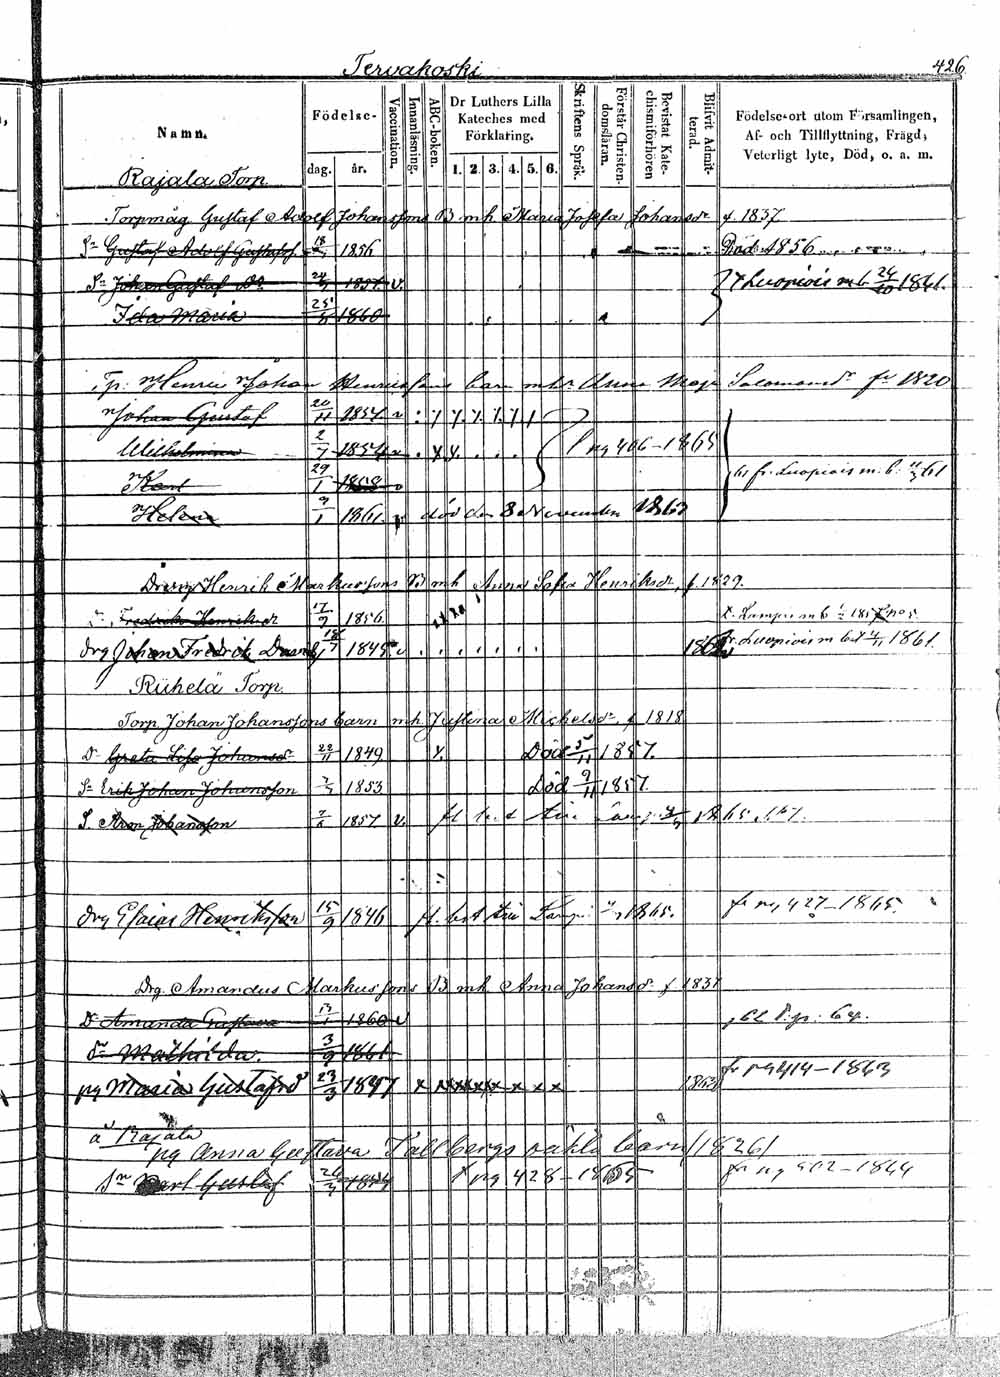 Tervakoski 426
Namn.
Födelse-
dag. år.
Vaccination.
Innanläsning.
ABC-boken.
Dr Luthers Lilla
Kateches med
Förklaring.
1. 2. 3. 4. 5. 6.
Skriftens Språk.
Förstår Christen-
domsläran.
Bevistat Kate-
chismiförhören
Blifvit Admit-
terad.
Födelse-ort utom Församlingen,
Af- och Tillflyttning, Frägd,
Veterligt lyte, Död, o. a. m.
Rajala Torp.
Torpmåg Gustaf Adolf Johanssons B mh Maria Josefa Johansdr f. 1837
Sn Gustaf Adolf Gustafss. 1856 Död 1856
Sn Johan Gustaf Do 1857 v. t Luopiois m b 24/10 1861.
Ida Maria 25 1860
Tp. Henric Johan Henricssons barn Anna Maja Salomonsdr f 1820
Johan Gustaf 20/11 1854
Wilhelmina 2/7 1854 v x x t pag 406-1865
Karl 29/1 1858 v fr. Luopiois m. b. 61
Helena 9/1 1861. v död den 8 November 1863
Henrik Markussons B mh Anna Sofia Henriksdr, f. 1829.
Fredrika Henriksdr 17/9 1856
drg Johan Fredrik 18/7 1845 v fr. Luopiois m b 1861.
Riihelä Torp.
Torp. Johan Johanssons barn mh Justina Michelsdr, f 1818
Dr Greta Lisa Johansdr 22/11 1849 x. Död 5/11 1857.
Sn Erik Johan Johansson 1853 Död 9/11 1857.
S. Aron Johansson 1857 v.
drg Esaias Henriksson 15/9 1846 fl. bet 1865. fr pag 427-1865.
Drg. Amandus Markussons B mh Anna Johansdr f 1837
Dr Amanda Gustava 1860 v
Dr Mathilda. 3/9 1861
pg Maria Gustafsdr 23/3 1847 x x x x x x x x 1863 fr pag 414-1863
å Rajala
pg Anna Gustava Tallbergs oäkta barn /1826/
Sn Karl Gustaf 26 t pag 428-1865 fr pag 902-1864